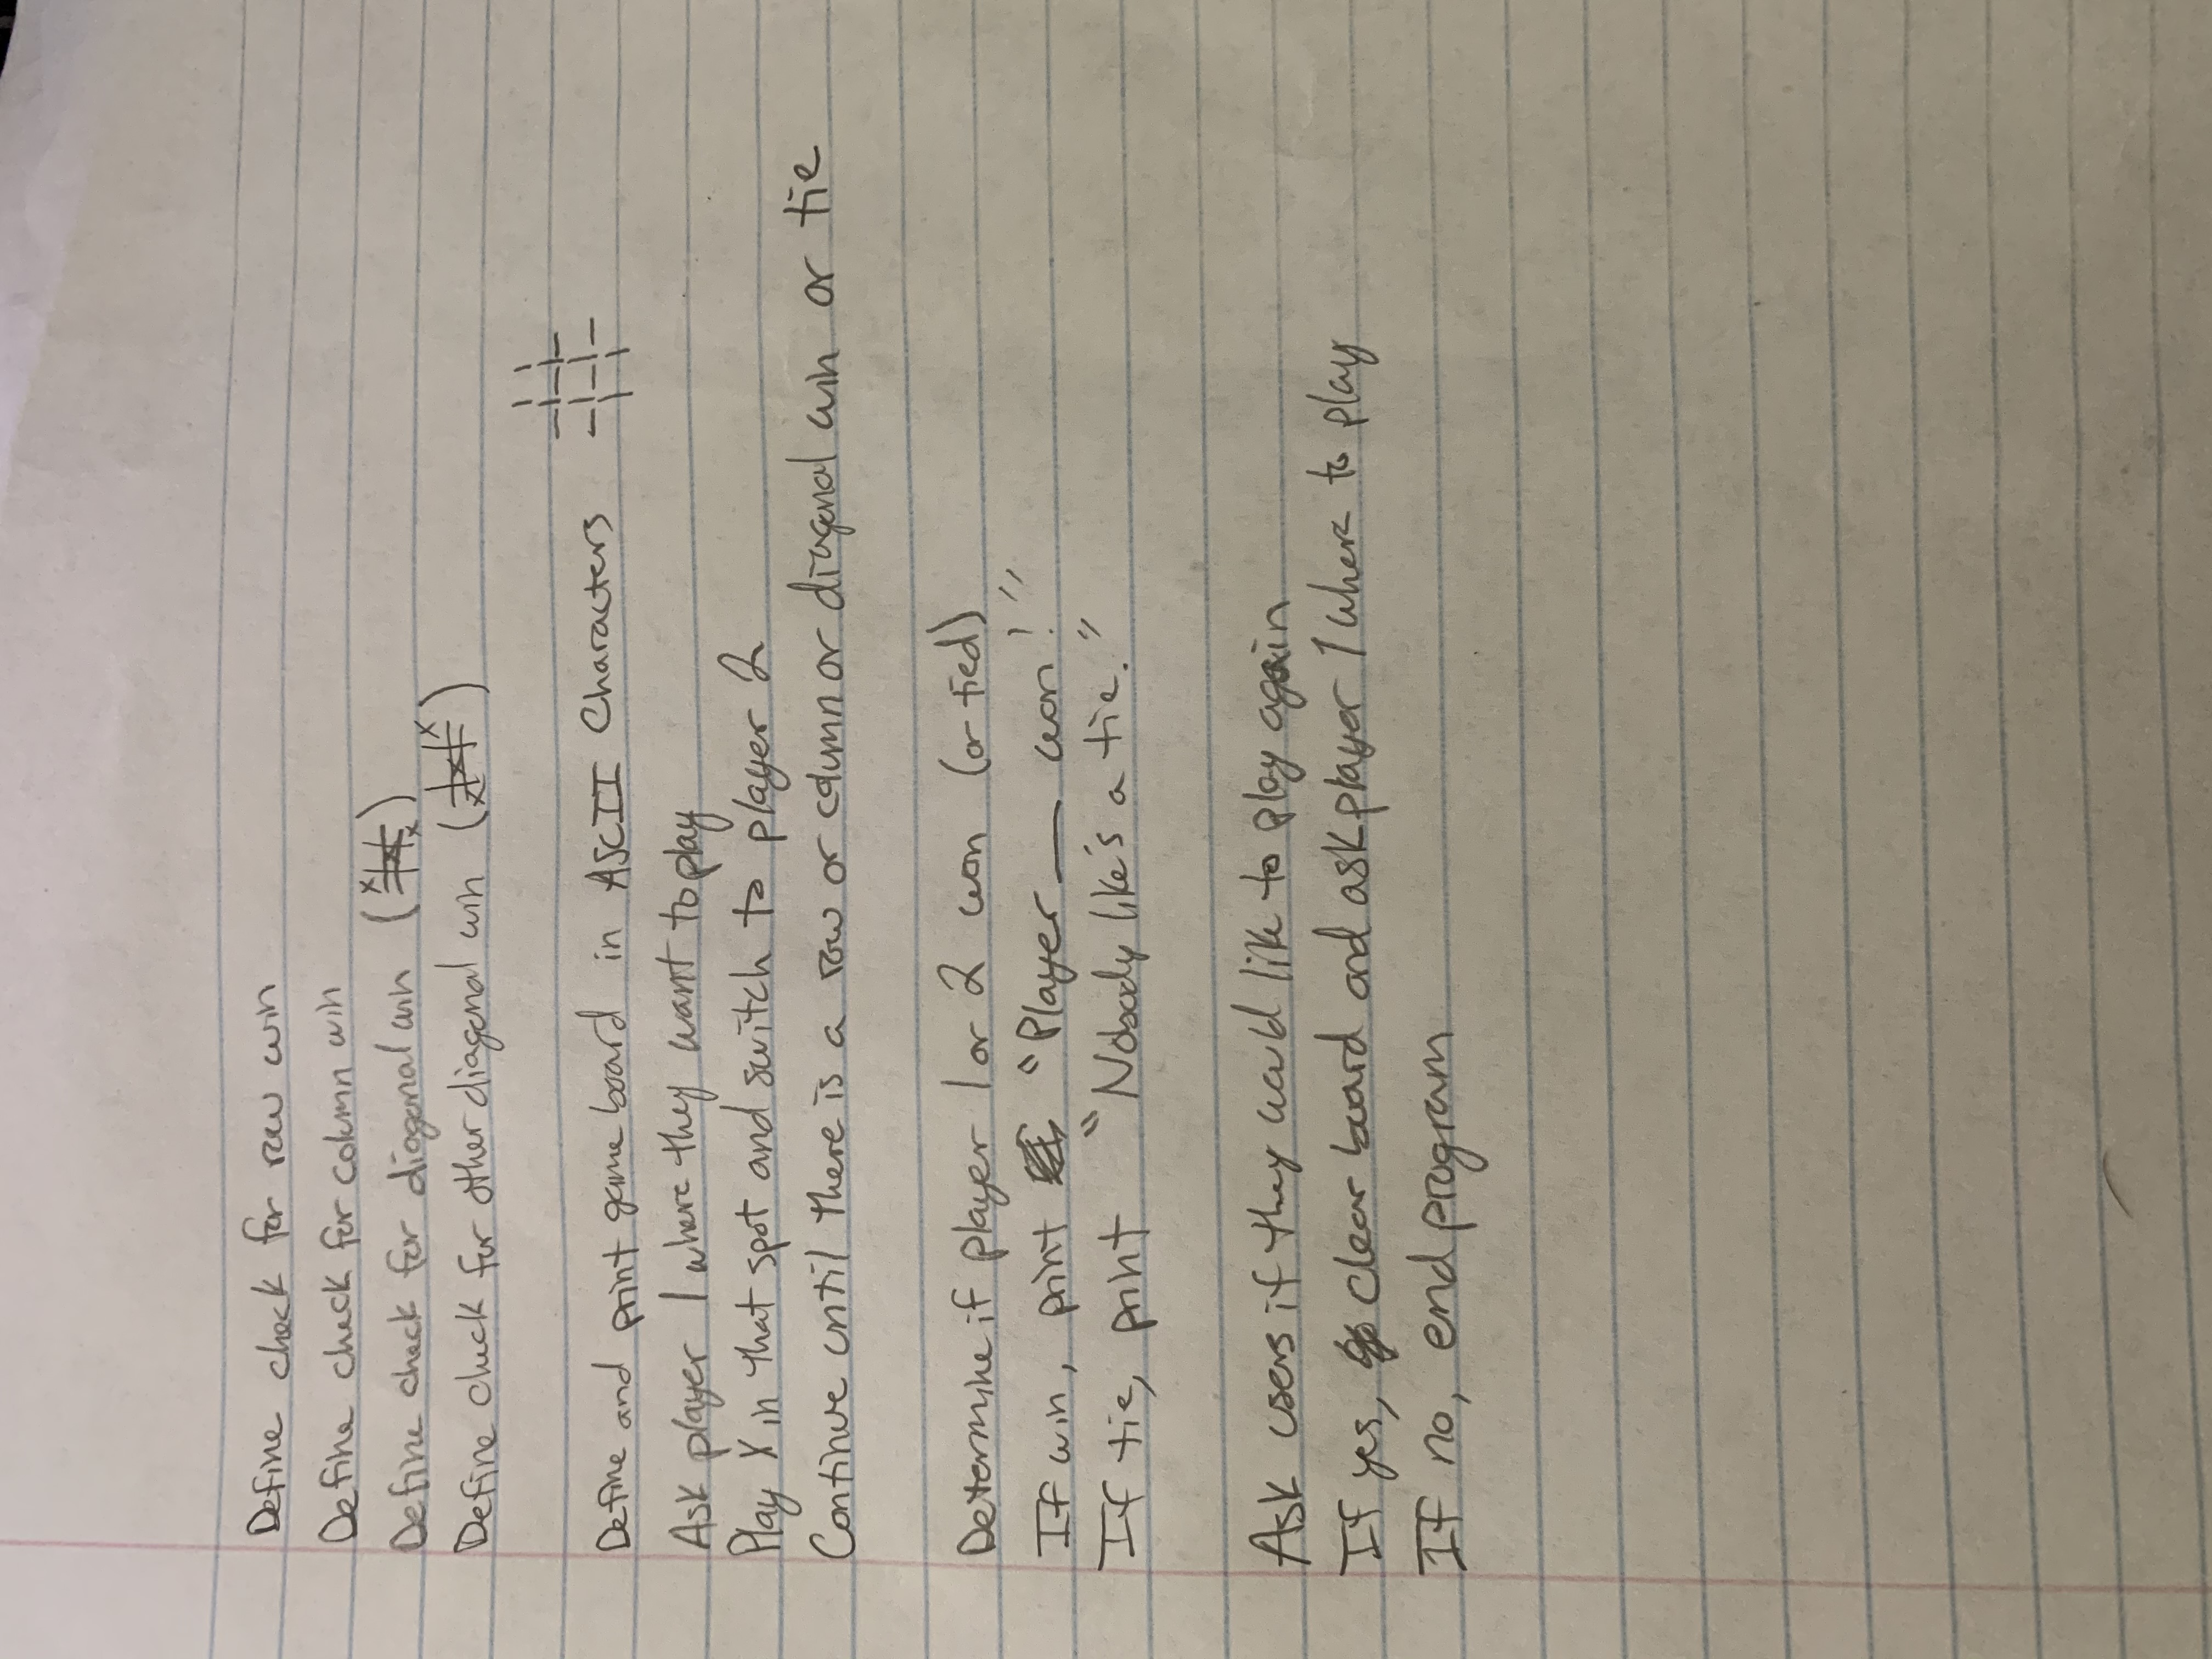 Define check for row win
Define check for column win
Define check for diagonal win (X X X)
Define check for other diagonal win (X X X)
Define and print game board in ASCII Characters
Ask player 1 where they want to play
Play X in that spot and switch to player 2
Continue until there is a row or column or diagonal win or tie
Determine if player 1 or 2 won (or tied)
If win, print "Player __ won!"
If tie, print "Nobody like's a tie."
Ask users if they would like to play again
If yes, clear board and ask player 1 where to play
If no, end program